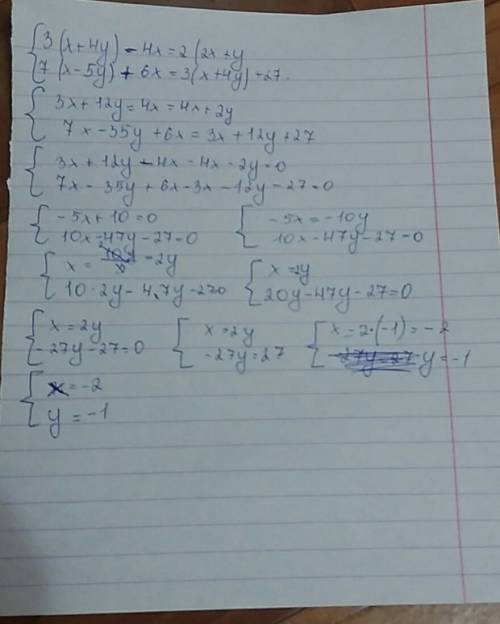 3(x+4y) - 4x = 2(2x+y
7(x-5y) + 6x = 3(x+4y)+27.
3x+12y=4x=4x+2y
7x-35y+6x=3x+12y+27
3x+12y-4x-4x-2y=0
7x-35y+6x-3x-12y-27=0
-5x+10=0 -5x=-10y
10x-47y-27=0 10x-47y-27=0
x= =2y x=2y
10·2y-47y-270 20y-47y-27=0
x=2y x=2y x=2·(-1)=-2
-27y-27=0 -27y=27 y=-1
x=-2
y=-1